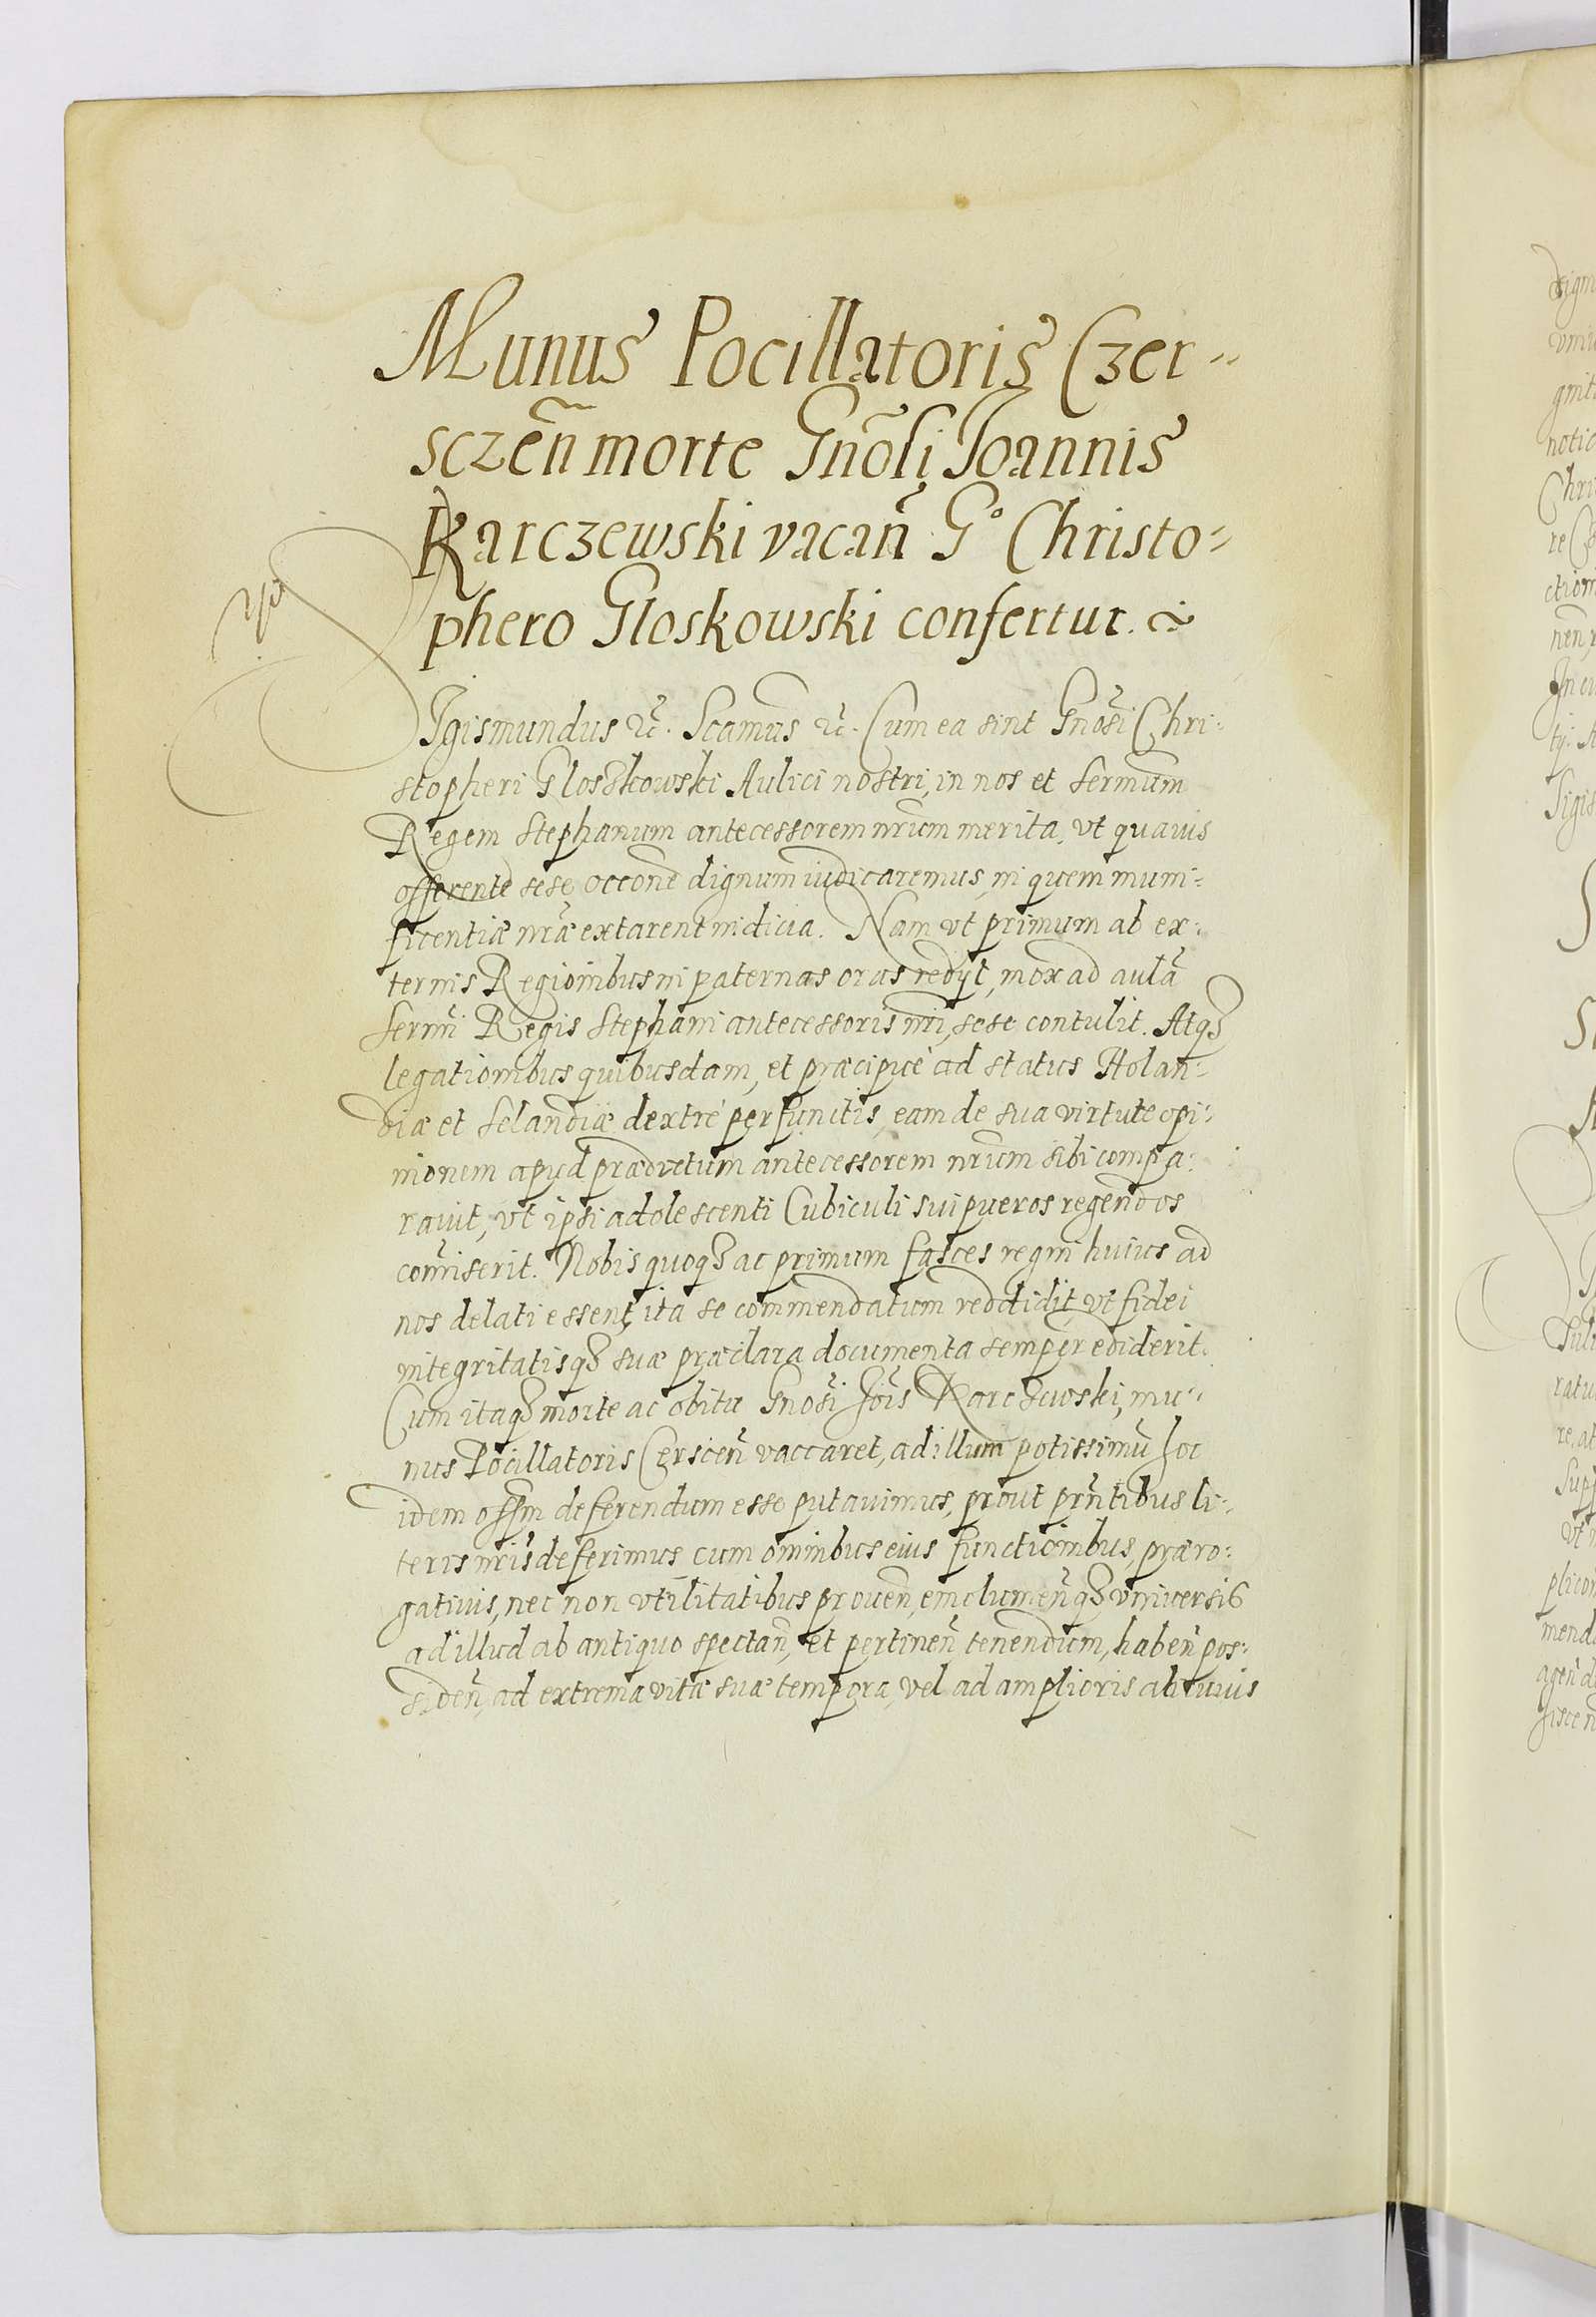 Munus Pocillatoris Czer=
sczen̄ morte Gnōsi Joannis
Karczewski vacan̄ G° Christo=
phero Gloskowski confertur.
Sigismundus etc. Scamus etc. Cum ea sint Gnōsi Chri=
stopheri Gloskowski Aulici nostri, in nos et Sermum
Regem Stephanum antecessorem nrum merita, vt quavis
offerente sese occone dignum iudicaremus, in quem muni=
ficentiæ nræ extarent indicia. Nam vt primum ab ex=
ternis Regionibus in paternas oras redijt, mox ad aulā
Sermi Regis Stephani antecessoris nri, sese contulit. Atq3
legationibus quibusdam, et præcipuè ad status Holan=
diæ et Selandiæ dextrè perfunctis, eam de sua virtute opi=
nionem apud prædictum antecessorem nrum sibi compa=
ravit, vt ipsi adolescenti Cubiculi sui pueros regendos
com̄iserit. Nobis quoq3 ac primum fasces regni huius ad
nos delati essent, ita se commendatum reddidit, vt fidei
integritatisq3 suæ præclara documenta semper ediderit.
Cum itaq3 morte ac obitu Gnōsi Jois Karczewski, mu=
nus Pocillatoris Cerscen̄ vaccaret, ad illum potissimū hoc
idem offm deferendum esse putavimus, prout prntibus li=
teris nris deferimus cum omnibus eius functionibus, præro=
gativis, nec non vtilitatibus proven̄, emolumen̄q3 vniversis
ad illud ab antiquo spectan̄, et pertinen̄ tenendum, haben̄ pos=
siden̄, ad extrema vitæ suæ tempora, vel ad amplioris alicuius